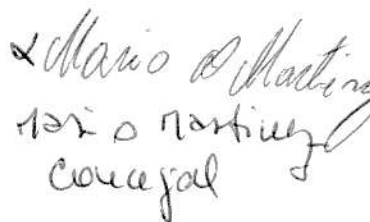 x Mario D Martinez
Mario Martinez
Concejal